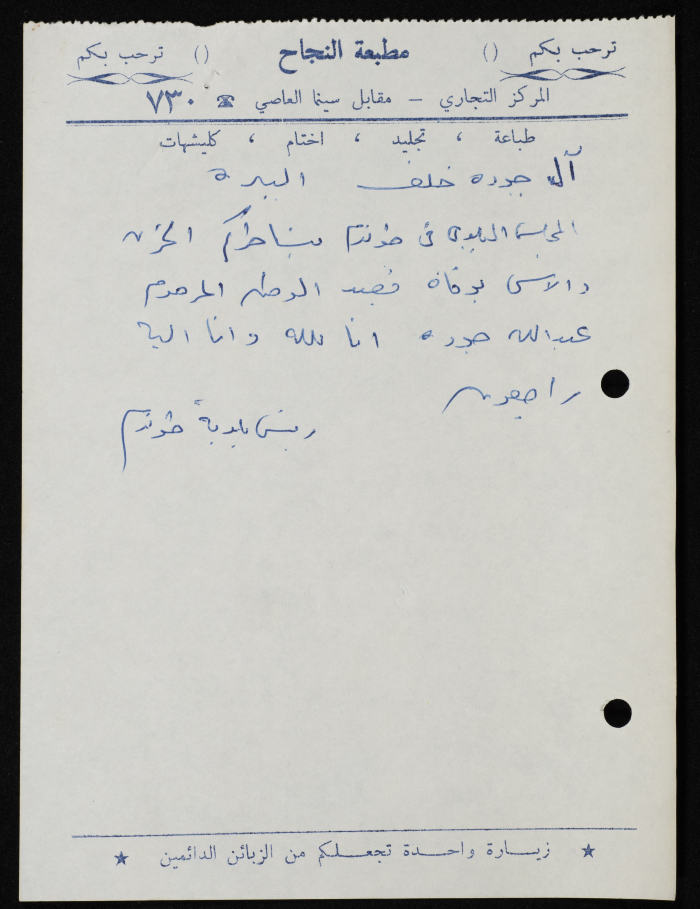 ترحب بكم () مطبعة النجاح () ترحب بكم
المركز التجاري - مقابل سينما العاصي ☎ ٧٣٠
طباعة ، تجليد ، اختام ، كليشهات
آل جوده خلف البيرة
المجلس البلدي في طولكرم يشاطركم الحزن
والاسى بوفاة فقيد الوطن المرحوم
عبدالله جوده انا لله وانا اليه
راجعون
رئيس بلدية طولكرم
★ زيارة واحدة تجعلكم من الزبائن الدائمين ★